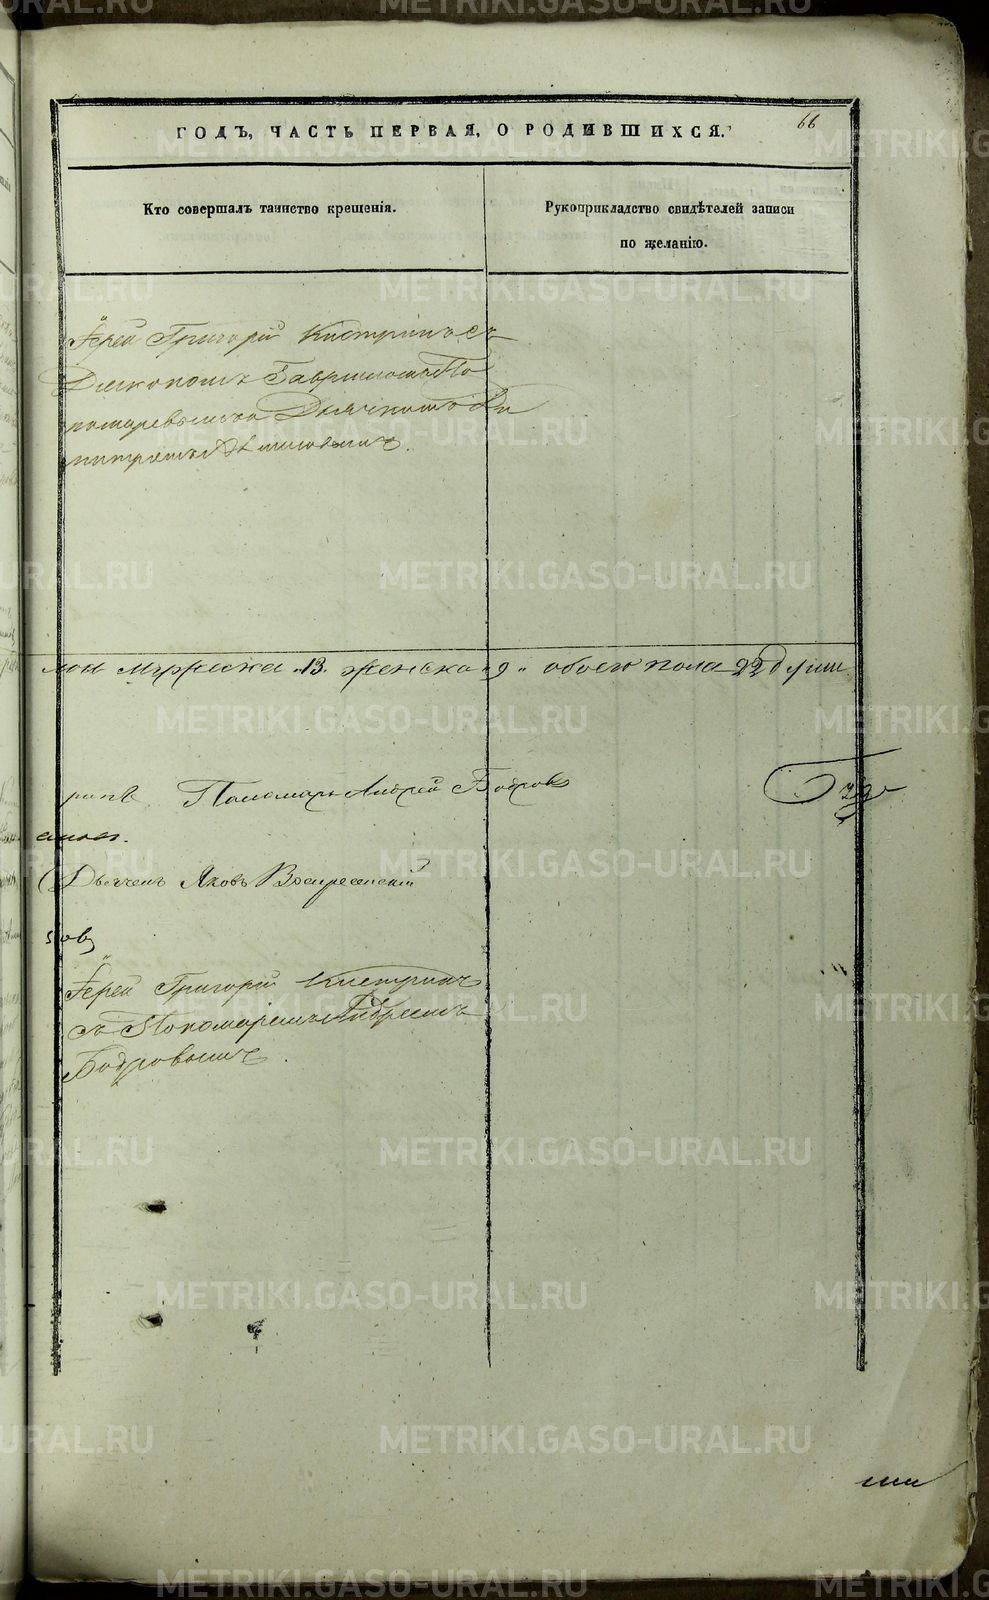 66
ГОДЪ, ЧАСТЬ ПЕРВАЯ, О РОДИВШИХСЯ.
Кто совершалъ таинство крещенія.
Рукоприкладство свидѣтелей записи
по желанію.
Іерей Григорій Кистринъ съ
Діякономъ Гавриломъ По
номаревымъ Дьячкомъ Ди
митріемъ
мужеска 13. женска 9 обоего пола 22 души
Пономарь Андрей Бодров
Дьячекъ Яковъ Воскресенскій
Іерей Григорій Кистринъ
съ Пономаремъ Андреемъ
Бодровымъ.
METRIKI.GASO-URAL.RU